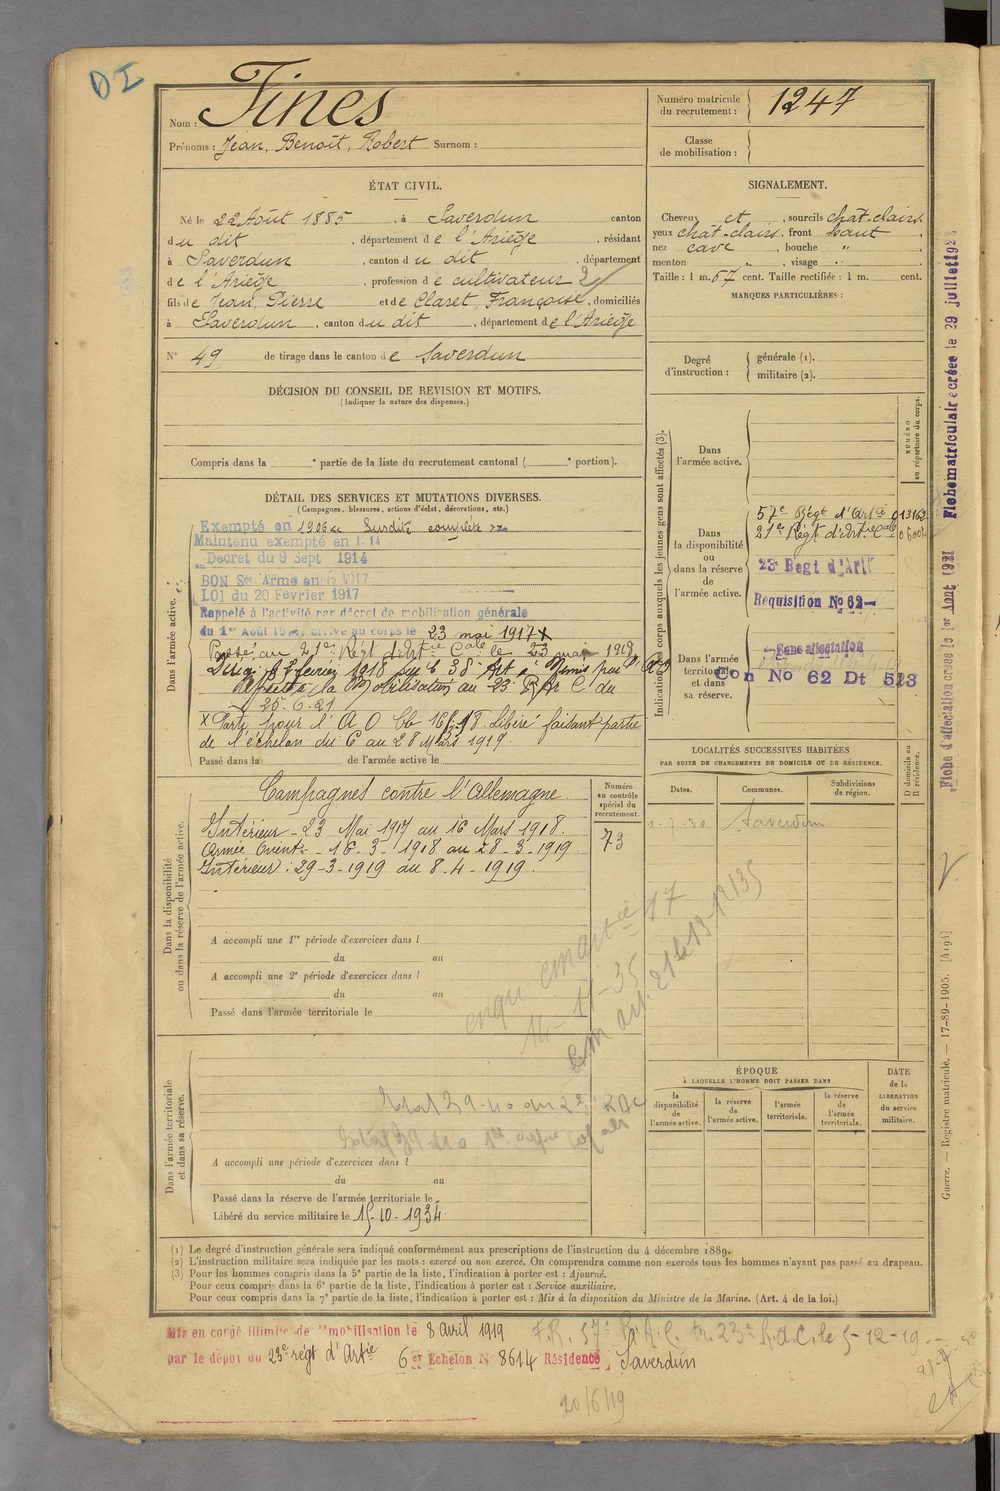 DI
Nom : Fines
Prénoms : Jean, Benoît, Robert Surnom :
Numéro matricule du recrutement : 1247
Classe de mobilisation :
ÉTAT CIVIL.
Né le 22 Août 1885, à Saverdun canton
du dit, département de l'Ariège, résidant
à Saverdun, canton du dit, département
de l'Ariège, profession de cultivateur 2
fils de Jean, Pierre et de Claret, Françoise, domiciliés
à Saverdun, canton du dit, département de l'Ariège
N° 49 de tirage dans le canton de Saverdun
SIGNALEMENT.
Cheveux et, sourcils chât-clairs
yeux chât-clairs, front haut,
nez cave, bouche "
menton ", visage "
Taille : 1 m. 67 cent. Taille rectifiée : 1 m. cent.
MARQUES PARTICULIÈRES :
Degré d'instruction : générale (1).
militaire (2).
DÉCISION DU CONSEIL DE REVISION ET MOTIFS.
(Indiquer la nature des dispenses.)
Compris dans la e partie de la liste du recrutement cantonal ( e portion).
DÉTAIL DES SERVICES ET MUTATIONS DIVERSES.
(Campagnes, blessures, actions d'éclat, décorations, etc.)
Dans l'armée active.
Exempté en 1906 " Surdité complète "
Maintenu exempté en 1914
Decret du 9 Sept 1914
BON Sce Armé en 1917
LOI du 20 Fevrier 1917
Rappelé à l'activité par décret de mobilisation générale
du 1er Août 1914. Arrivé au corps le 23 mai 1917 X
Passé au 21e Régt d'Artie Cale le 23 mai 1918
25-6-21
X Parti pour l'A O libéré faisant partie
de l'échelon du 6 au 28 Mars 1919.
Passé dans la de l'armée active le
Indication des corps auxquels les jeunes gens sont affectés (3).
NUMÉRO au répertoire du corps.
Dans l'armée active.
Dans la disponibilité ou dans la réserve de l'armée active.
57e Régt d'Artie
21e Régt d'Artie Cale
23e Regt d'Art
Requisition No 62
Dans l'armée territoriale et dans sa réserve.
Sans affectation
Con No 62 Dt 513
Dans la disponibilité ou dans la réserve de l'armée active.
Campagnes contre l'Allemagne.
Intérieur - 23 Mai 1917 au 16 Mars 1918.
Armée Orient - 16-3-1918 au 28-3-1919
Intérieur : 29-3-1919 au 8-4-1919.
Numéro au contrôle spécial du recrutement.
73
A accompli une 1re période d'exercices dans l
du au
A accompli une 2e période d'exercices dans l
du au
Passé dans l'armée territoriale le
LOCALITÉS SUCCESSIVES HABITÉES
PAR SUITE DE CHANGEMENTS DE DOMICILE OU DE RÉSIDENCE.
Dates. Communes. Subdivisions de région. D domicile ou R résidence.
1-7-30 Saverdun
Dans l'armée territoriale et dans sa réserve.
A accompli une période d'exercices dans l
du au
Passé dans la réserve de l'armée territoriale le
Libéré du service militaire le 15-10-1934
ÉPOQUE
À LAQUELLE L'HOMME DOIT PASSER DANS
la disponibilité de l'armée active. la réserve de l'armée active. l'armée territoriale. la réserve de l'armée territoriale.
DATE de la LIBÉRATION du service militaire.
(1) Le degré d'instruction générale sera indiqué conformément aux prescriptions de l'instruction du 4 décembre 1889.
(2) L'instruction militaire sera indiquée par les mots : exercé ou non exercé. On comprendra comme non exercés tous les hommes n'ayant pas passé au drapeau.
(3) Pour les hommes compris dans la 5e partie de la liste, l'indication à porter est : Ajourné.
Pour ceux compris dans la 6e partie de la liste, l'indication à porter est : Service auxiliaire.
Pour ceux compris dans la 7e partie de la liste, l'indication à porter est : Mis à la disposition du Ministre de la Marine. (Art. 4 de la loi.)
Mis en congé illimité de démobilisation le 8 avril 1919
par le dépot du 23e régt d'Artie 6 et Echelon N° 8614 Résidence Saverdun
F.R. 57e R.A.C. tr. 23e R.A.C. le 5-12-19
20/6/19
Fiche matriculaire créée le 29 juillet 1924
Fiche d'affectation créée le 1er Aout 1921
Guerre. — Registre matricule. — 17-89-1905. [4194]